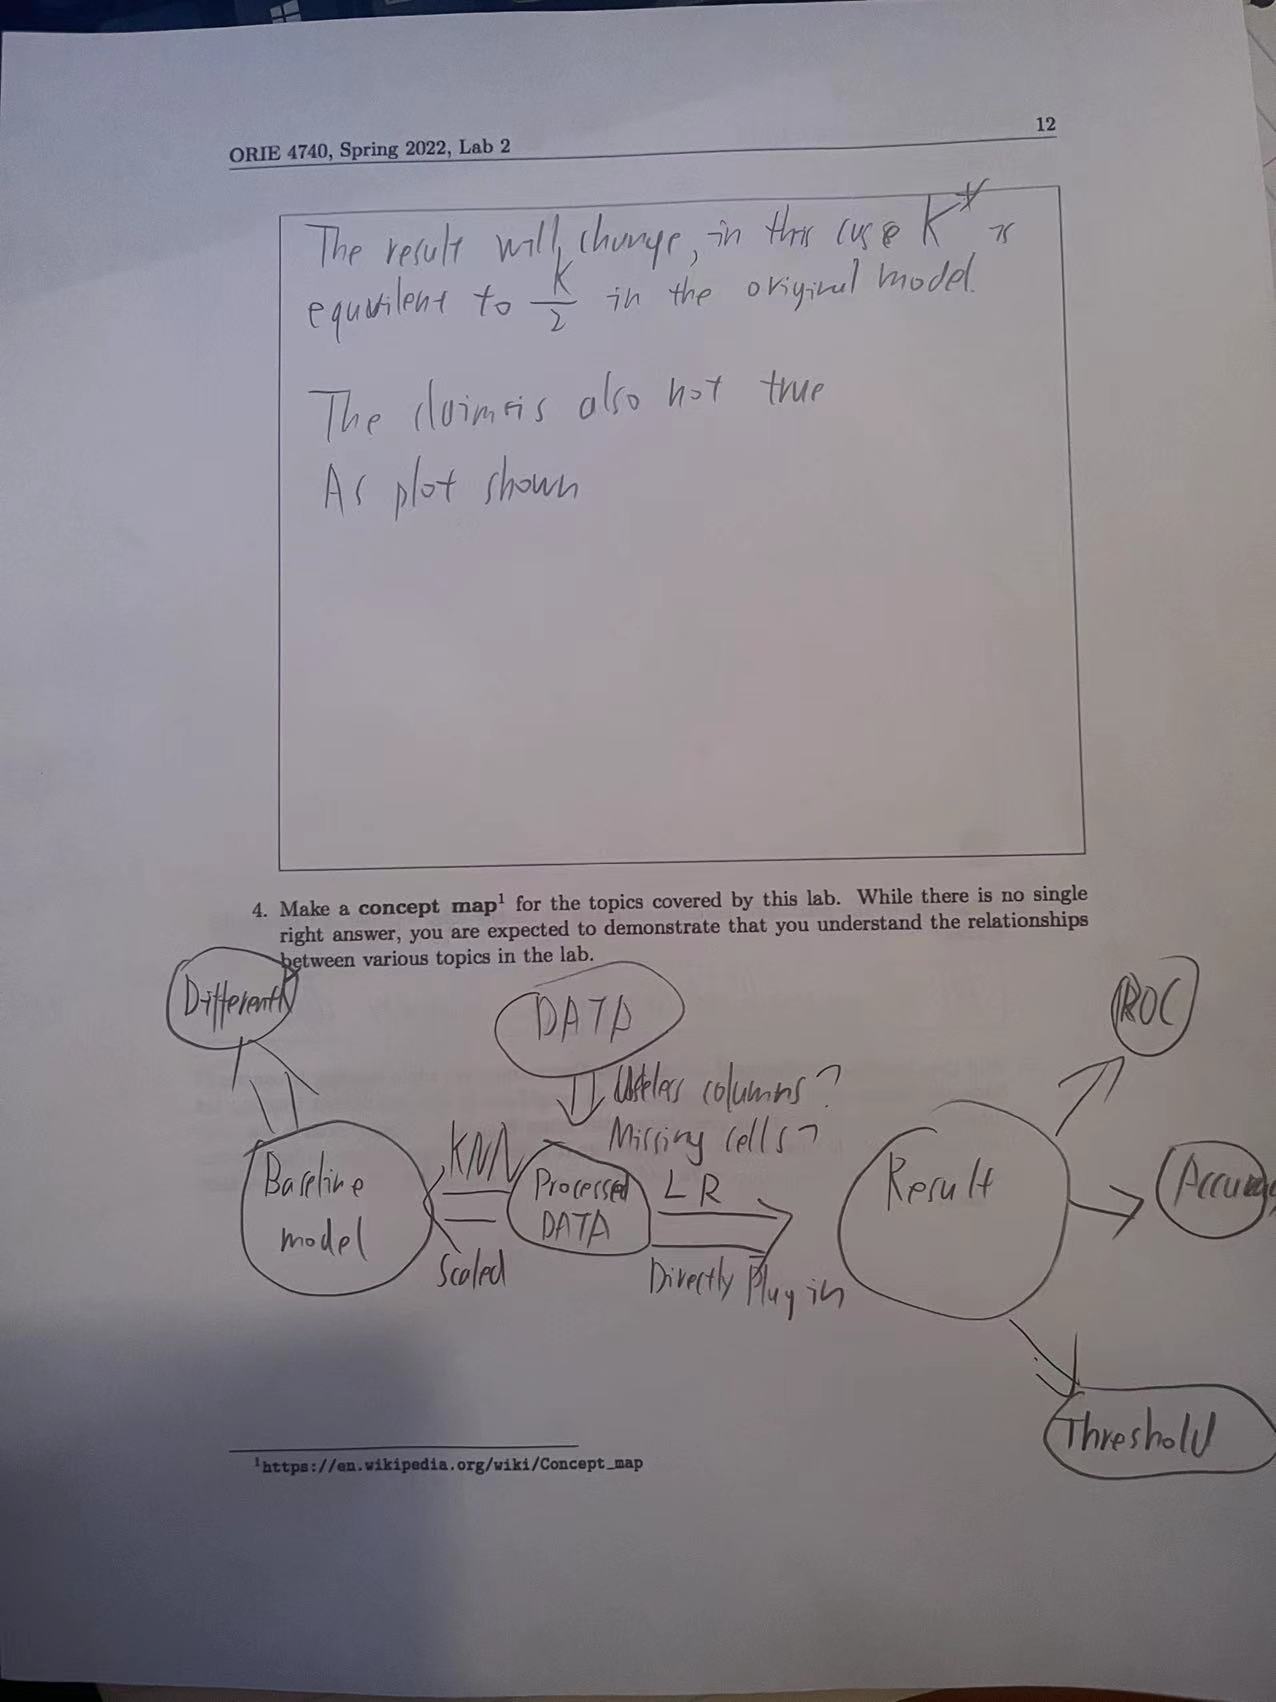 ORIE 4740, Spring 2022, Lab 2
12
The result will change, in this case K* is
equvilent to K/2 in the original model.
The claim is also not true
As plot shown
4. Make a concept map¹ for the topics covered by this lab. While there is no single
right answer, you are expected to demonstrate that you understand the relationships
between various topics in the lab.
Differently
DATA
ROC
Useless columns?
Missing cells?
KNN
Baseline
model
Processed
DATA
LR
Result
Accuracy
Scaled
Directly Plug in
Threshold
¹https://en.wikipedia.org/wiki/Concept_map